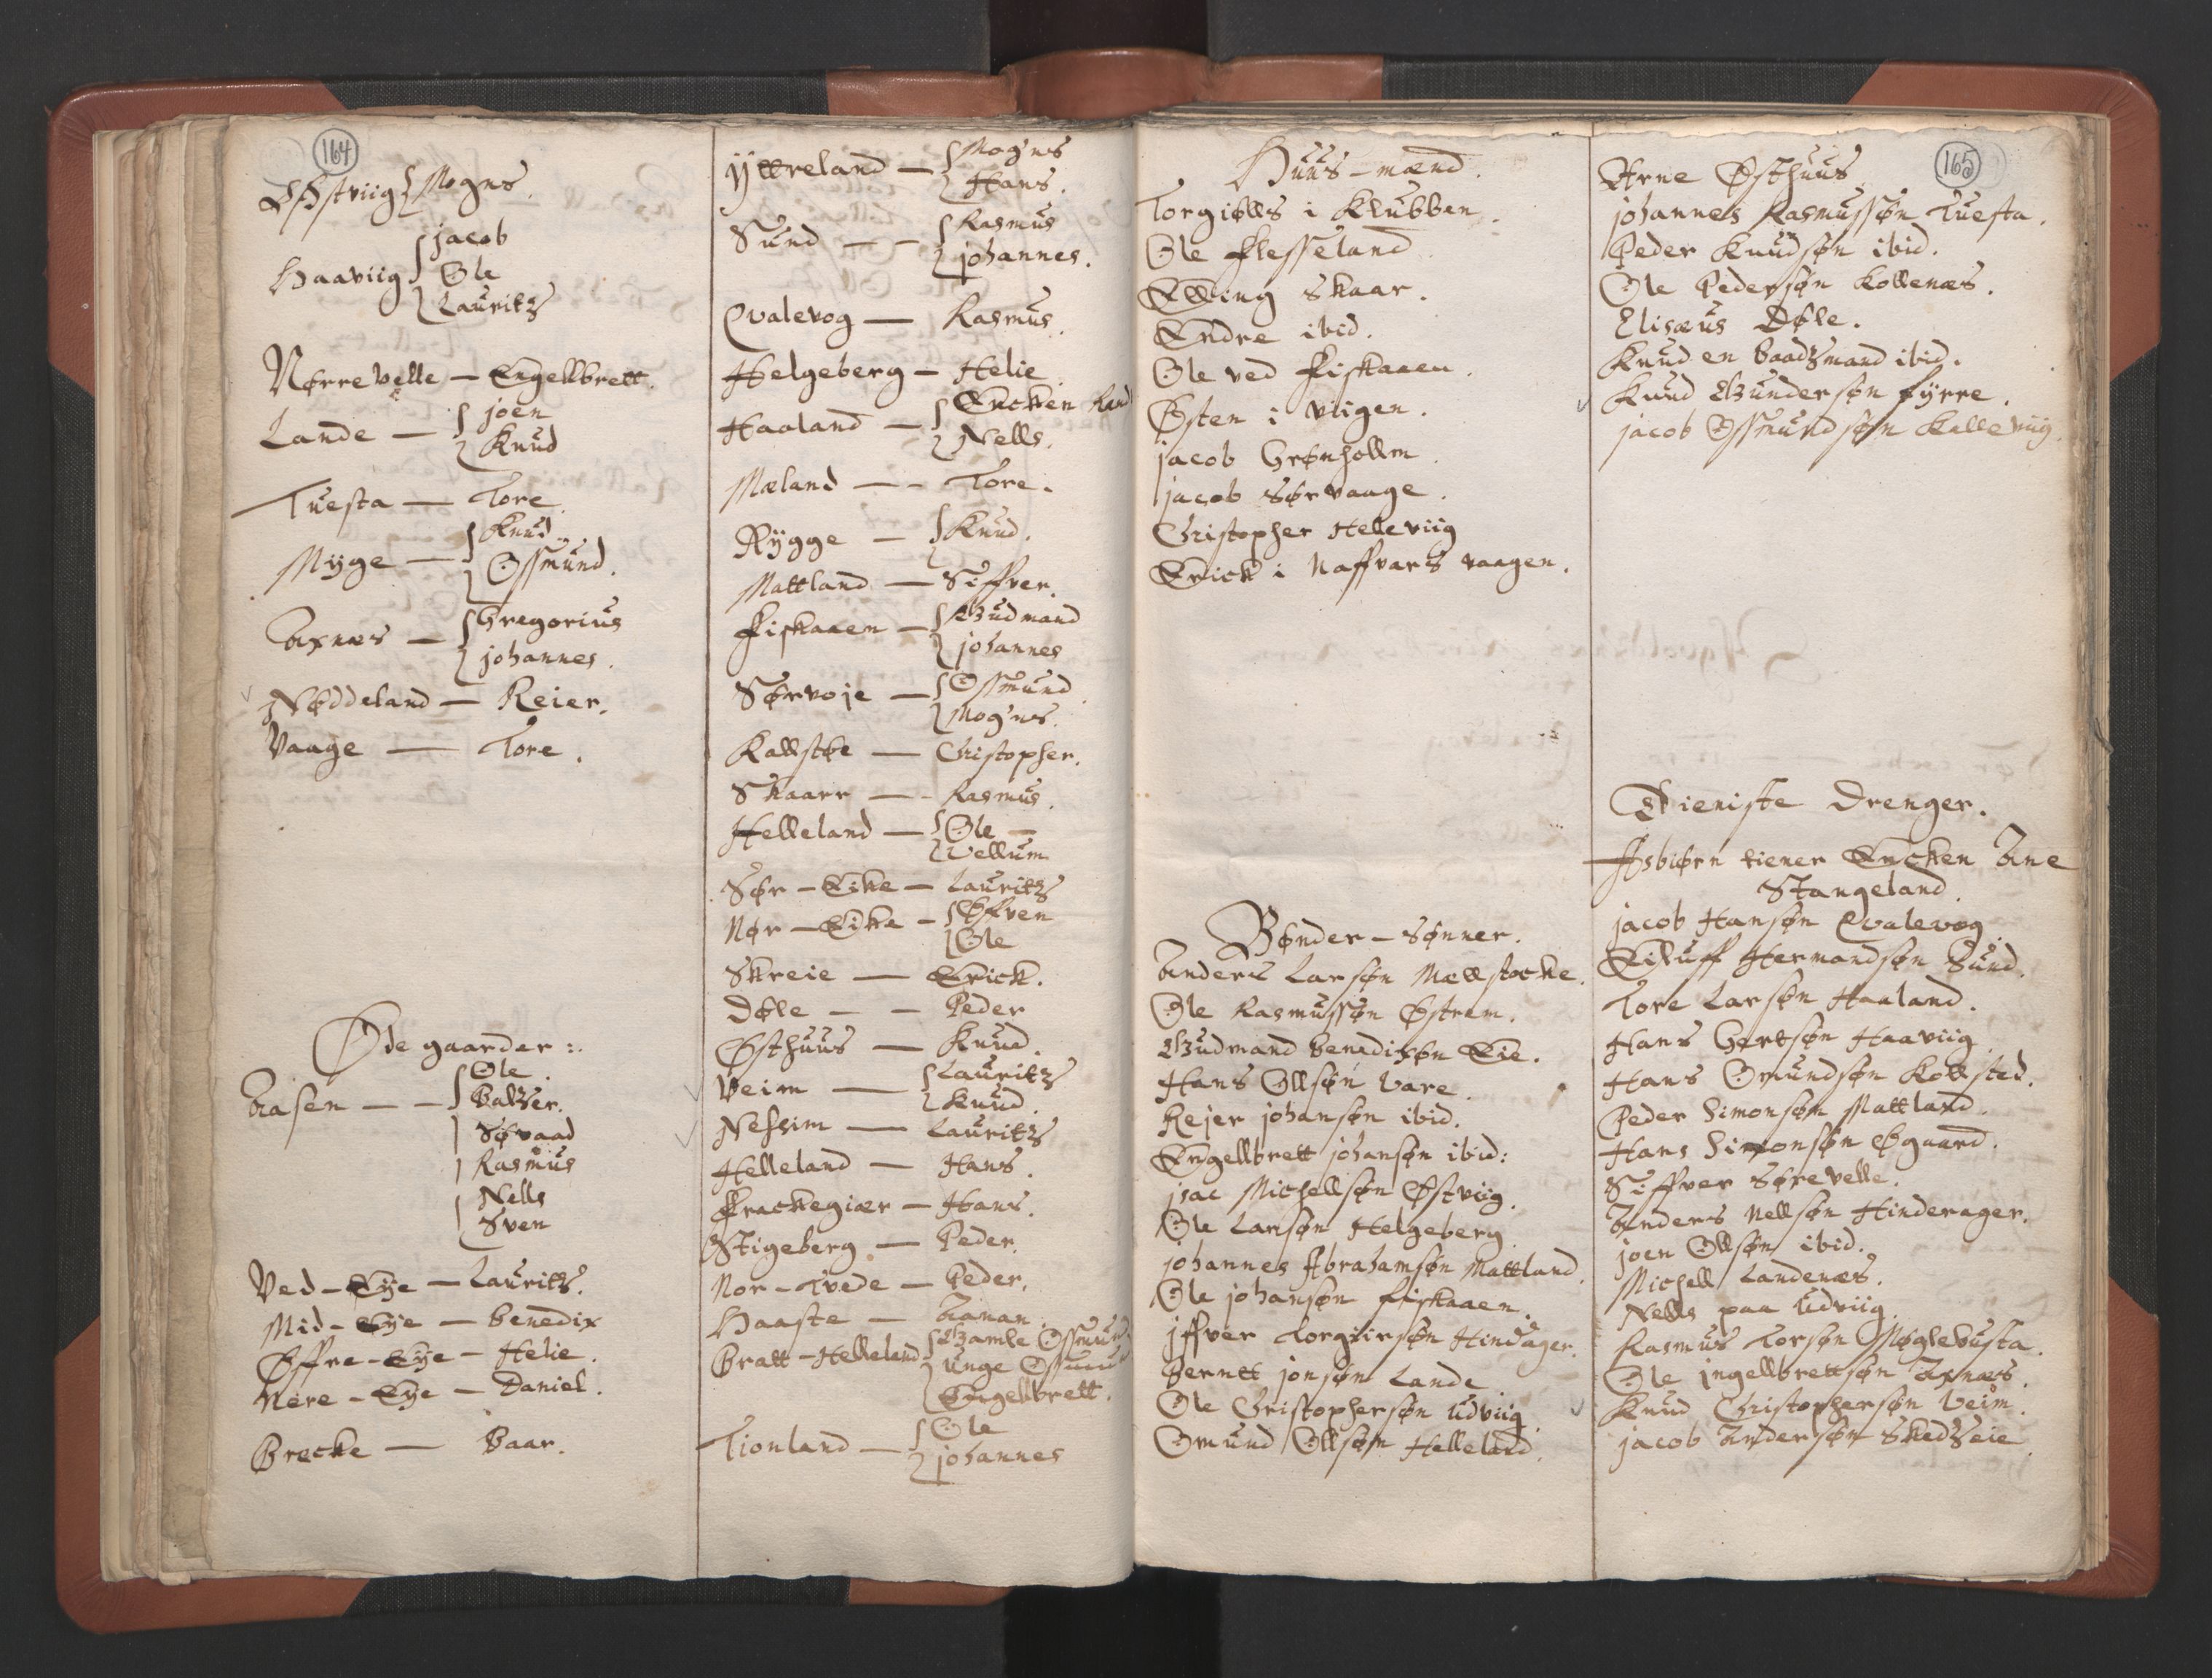 164
Østviig Mogns.
jacob
Haaviig Ole
Lauritz
Nørre Velle — Engellbrett.
Lande — joen
Knud
Tuesta — Tore.
Knud
Myge — Ossmund.
Axnes — Gregorius
johannes.
Nøddeland — Reier.
Vaage — Tore.
Øde gaarder:.
Aasen — — Ole.
Baltzer.
Søvaad
Rasmus
Nells
Sven
Ved-Eye — Lauritz.
Mid-Eye — Benedix
Øffre-Eye — Helie.
Nere-Eye — Daniel.
Brecke — Baar.
Yttreland — Mogns
Hans.
Sund — — Rasmus
johannes.
Qvalevog — Rasmus.
Helgeberg — Helie
Haaland — Encken Rand
Nells.
Mæland — — Tore.
Rygge — Knud.
Mattland — Siffver.
Fiskaaen — Gudmand
johannes
Sørvoje — Ossmund
Mogns.
Kallstøe — Christopher.
Skaarr — — Rasmus.
Helleland — Ole
Vellum
Sør-Eike — Lauritz
Nør-Eike — Øffven
Ole
Skreie — Erick.
Døle — — Peder
Østhuus — Knud.
Veim — Lauritz
Knud.
Nessim — Lauritz
Helleland — Hans.
Frackegiær — Hans.
Stigeberg — Peder.
Nor-Tvede — Peder.
Haaste — Aaman.
Bratt-Helleland Gamle Ossmund
Unge Ossmund
Engelbrett.
Tionland — Ole
johannes
Huus-mænd.
Torgiølls i Klubben.
Ole Flesseland
Elling Skaar.
Endre ibid.
Ole ved Fiskaaen.
Østen i Viigen.
jacob Grønhollm.
jacob Sørvaage.
Christopher Helleviig
Erick i Naffvars vaagen.
Bønder-sønner.
Anders Larsøn Mellstocke.
Ole Rasmussøn Østrem.
Gudmand Benedixsøn Eie.
Hans Ollsøn Vare.
Rejer johansøn ibid.
Engellbrett johansøn ibid:
jsac Michellsøn Østviig.
Ole Larsøn Helgeberg.
johannes Abrahamsøn Mattland.
Ole johansøn Fiskaaen.
jffver Torgiirsøn Hindager.
Berntt jonsøn Lande
Ole Christophersøn Udviig
Omund Ollsøn Helleland.
165
Arne Østhuus
johannes Rasmussøn Tuesta.
Peder Knudsøn ibid.
Ole Pedersøn Kollenæs.
Elisæus Døle.
Knud en baadtzmand ibid.
Knud Gundersøn Fyrre.
jacob Ossmundsøn Kalleviig.
Tieniste Drenger.
Asbiørn tiener Encken Ane
Stangeland.
jacob Hansøn Qvalevog
Eiluff Hermandsøn Sund.
Tore Larsøn Haaland.
Hans Gertsøn Haaviig
Hans Omundsøn Kollsted.
Peder Simonsøn Mattland.
Hans Simonsøn Øgaard.
Siffver Sørevelle.
Anders Nellsøn Hinderager.
joen Ollsøn ibid.
Michell Landenæs.
Nells paa Udviig.
Rasmus Torsøn Møglebusta.
Ole jngellbrettsøn Axnæs.
Knud Christophersøn Veim.
jacob Andersøn Skedtzeie